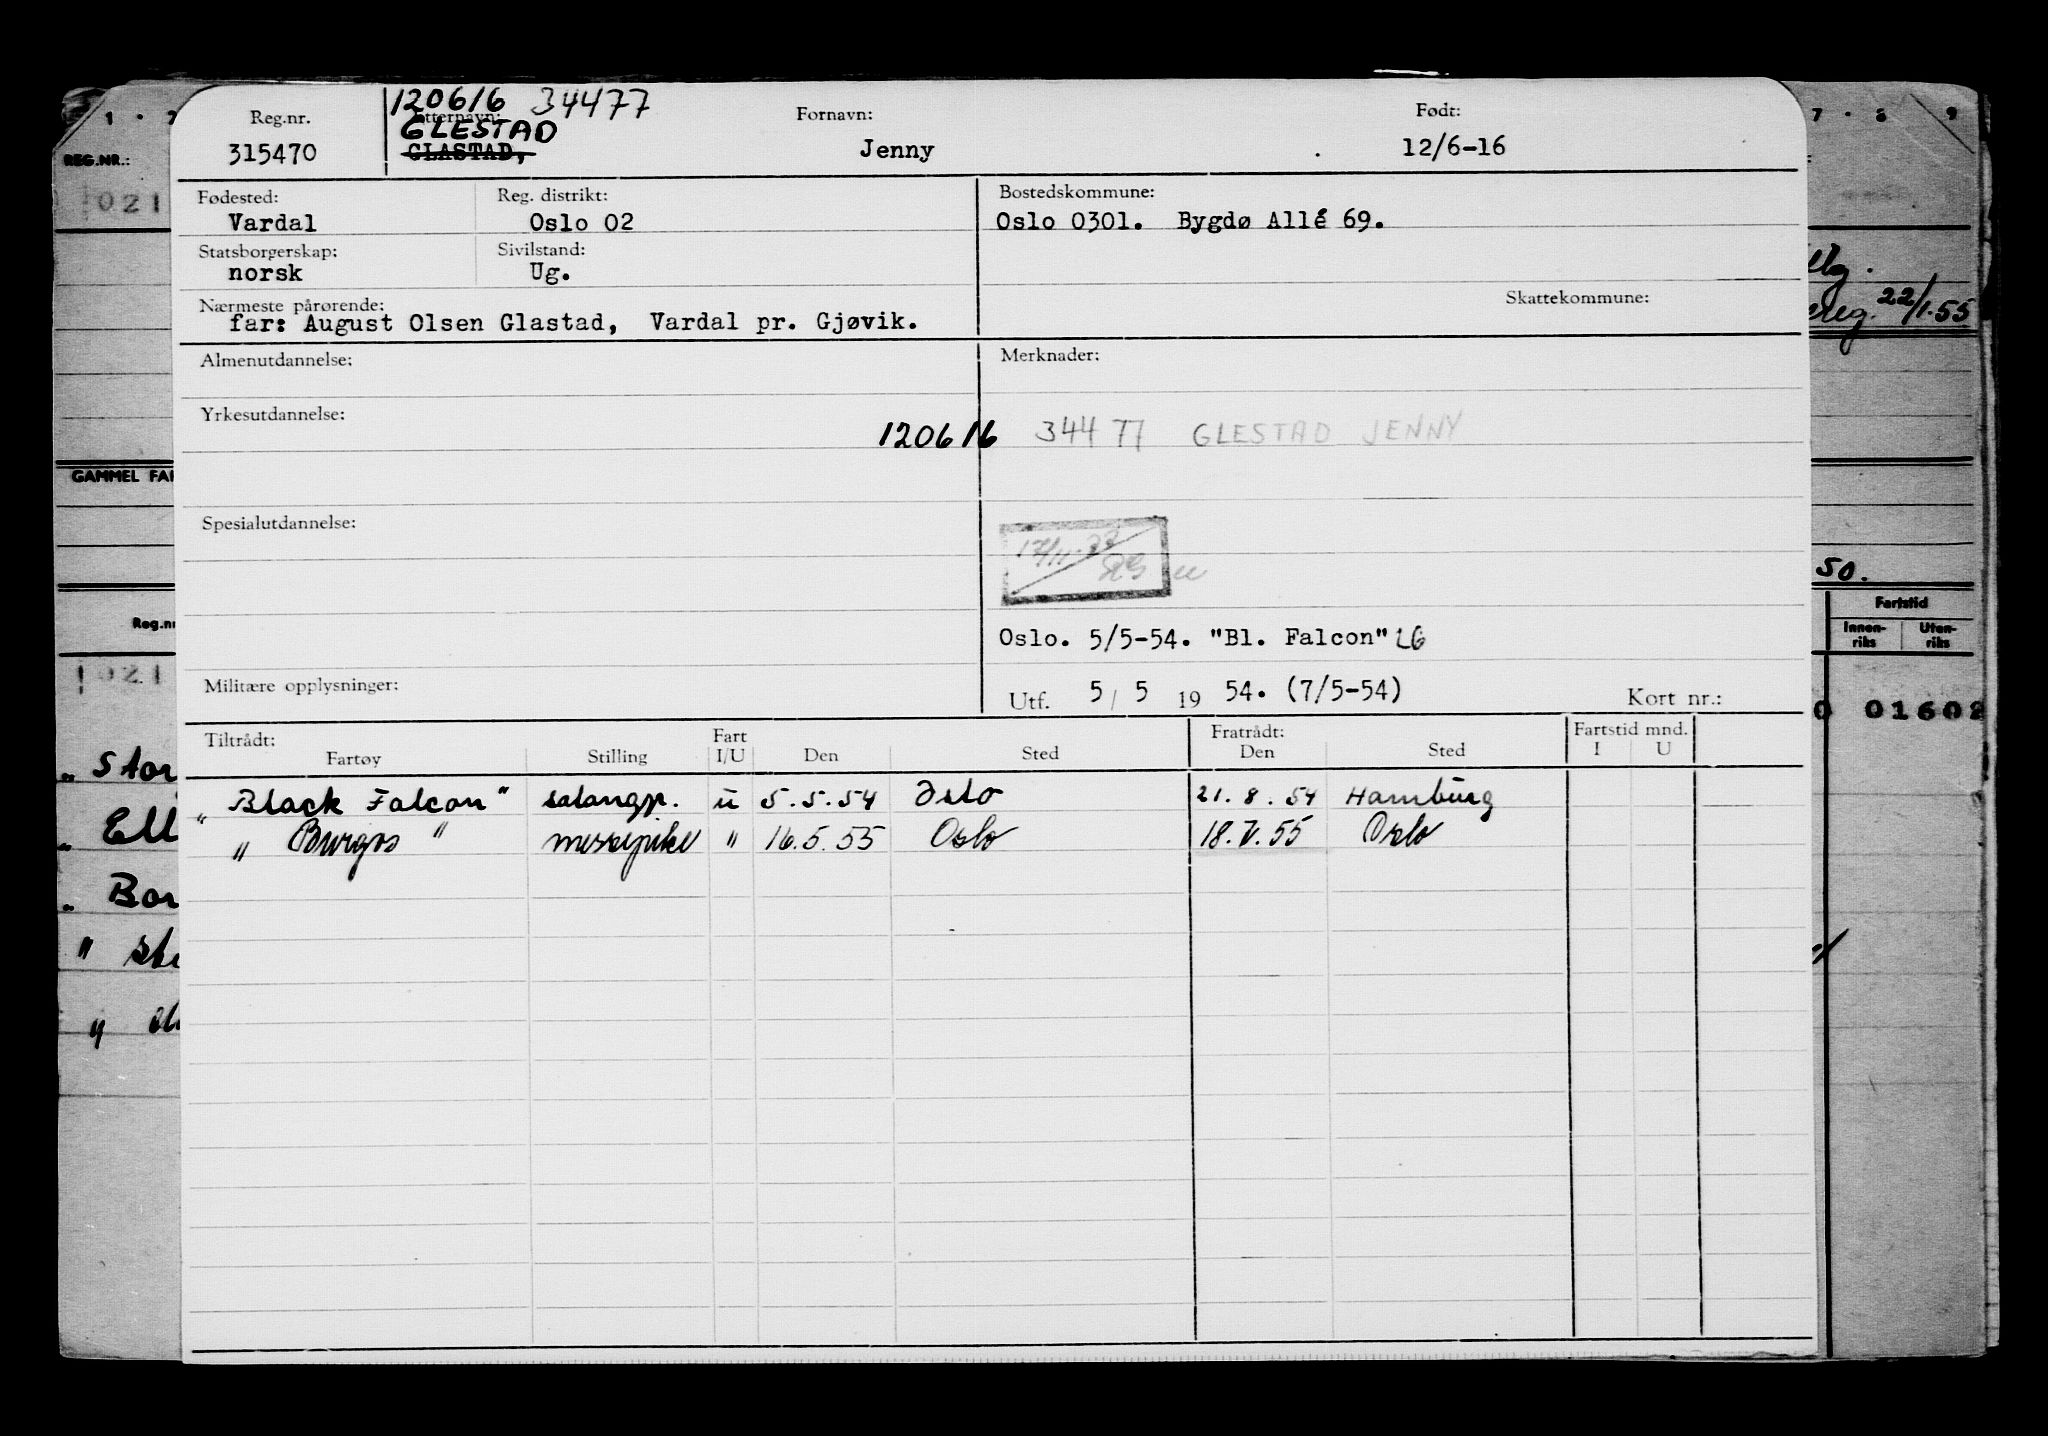 120616 34477
Reg.nr. Etternavn: Fornavn: Født:
GLESTAD
315470 GLASTAD, Jenny 12/6-16
Fødested: Reg. distrikt: Bostedskommune:
Vardal Oslo 02 Oslo 0301. Bygdø Allé 69.
Statsborgerskap: Sivilstand:
norsk Ug.
Nærmeste pårørende: Skattekommune:
far: August Olsen Glastad, Vardal pr. Gjøvik.
Almenutdannelse: Merknader:
Yrkesutdannelse:
120616 34477 GLESTAD JENNY
Spesialutdannelse:
Oslo. 5/5-54. "Bl. Falcon" LG
Militære opplysninger:
Utf. 5/5 1954. (7/5-54) Kort nr.:
Tiltrådt: Fart Fratrådt: Fartstid mnd.
Fartøy Stilling I/U Den Sted Den Sted I U
"Black Falcon" salongp. u 5.5.54 Oslo 21.8.54 Hamburg
"Burgos" messepike " 16.5.55 Oslo 18.V.55 Oslo
REG.NR.:
021
GAMMEL
Reg.nr
021
" Stor
" Ell
" Bor
7 · 8 9
22/1.55
50.
Fartstid
Innen-riks Uten-riks
0 01602